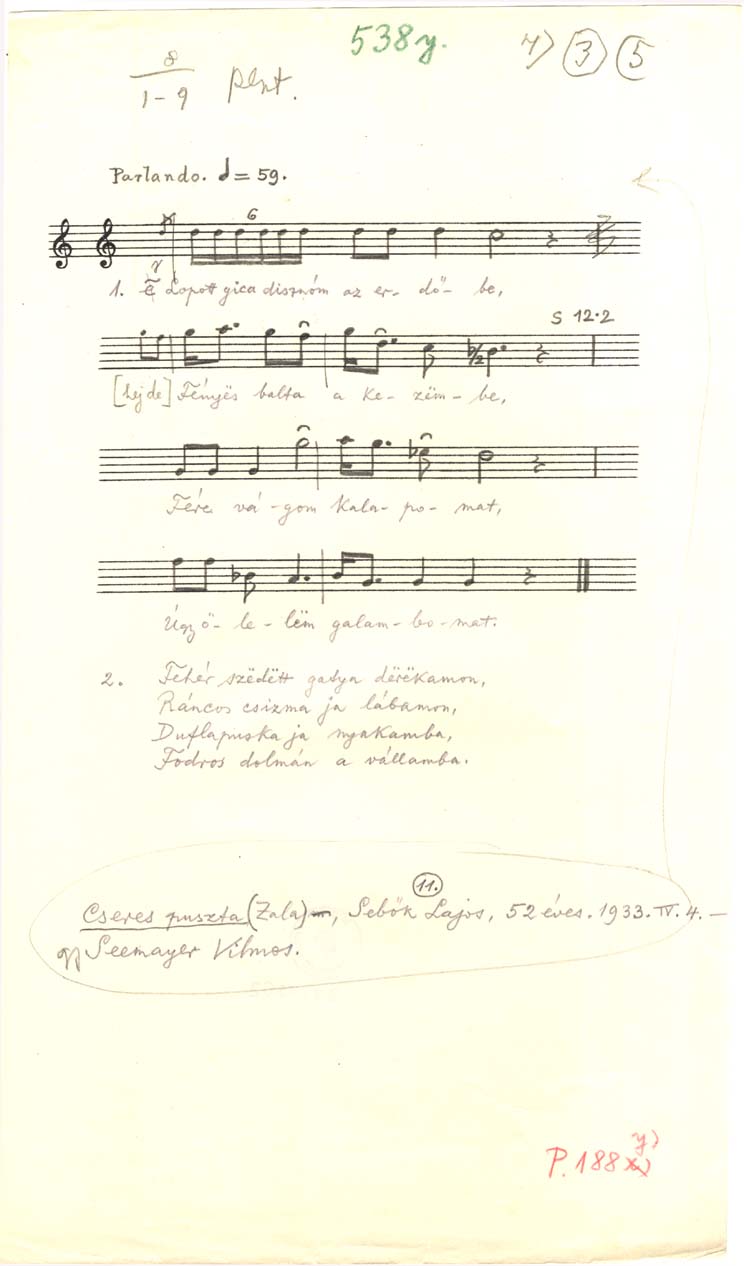 538y. 7) 3 5
8
1-9 Pent.
Parlando. = 59.
6
1. Lopott gica disznóm az er- dő- be,
S 12.2
[hejde] Fényës balta a ke- zëm- be,
Fére vá- gom kala- po- mat,
Úgy ö- le- lëm galam- bo- mat.
2. Fehér szëdëtt gatya dërëkamon,
Ráncos csizma ja lábamon,
Duflapuska ja nyakamba,
Fodros dolmán a vállamba.
11.
Cseres puszta (Zala), Sebők Lajos, 52 éves. 1933. IV. 4. –
gy Seemayer Vilmos.
y)
P. 188 x)